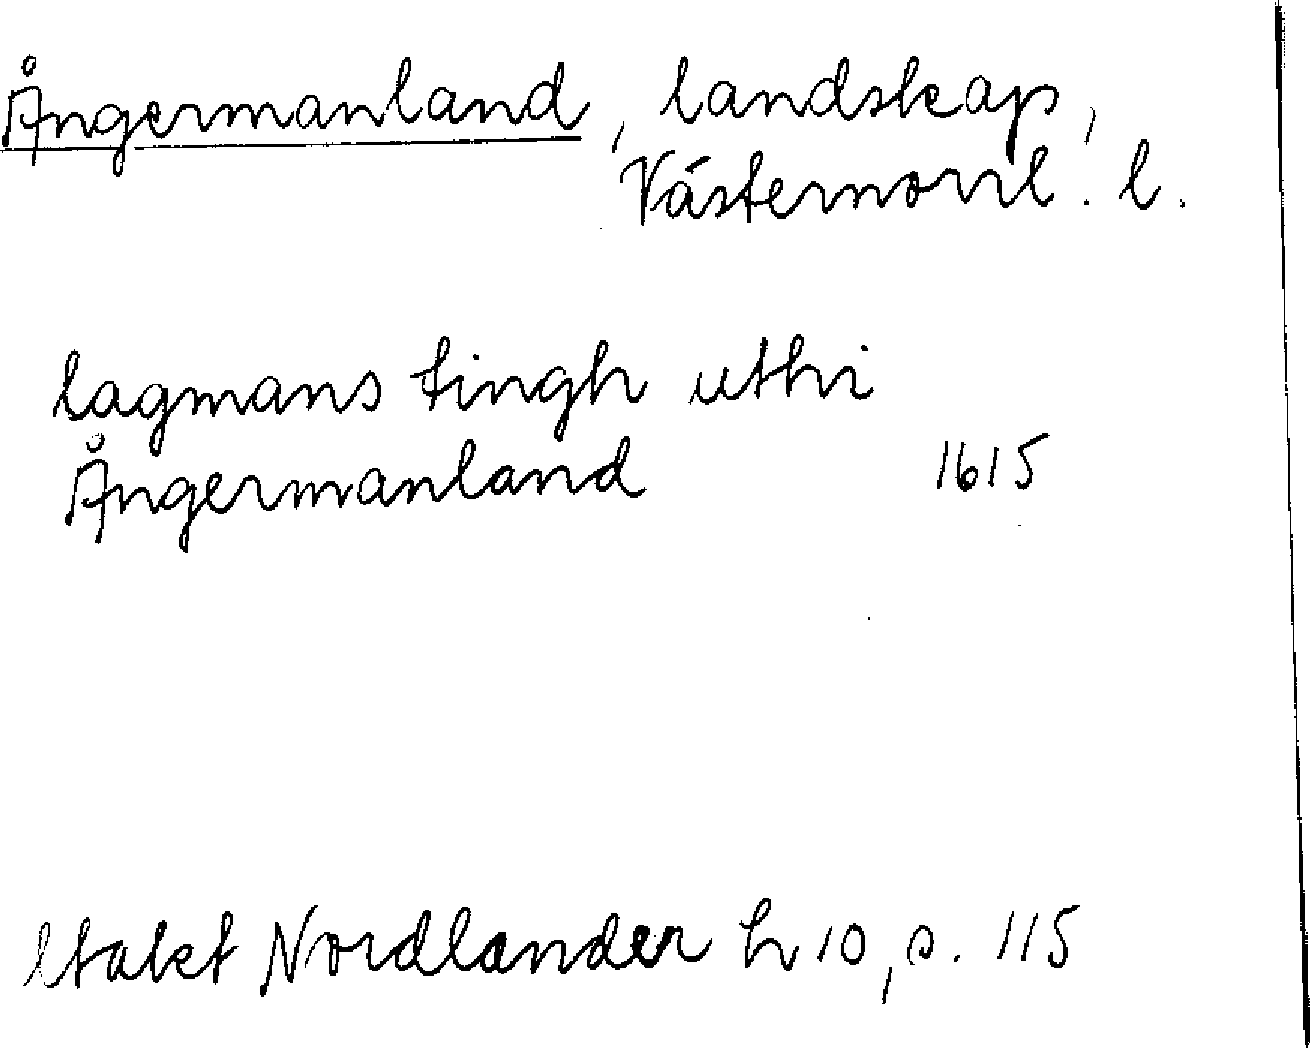 Ångermanland, landskap,
Västernorrl. l.
lagmans tingh uthi
Ångermanland 1615
Nordlander h 10, s. 115